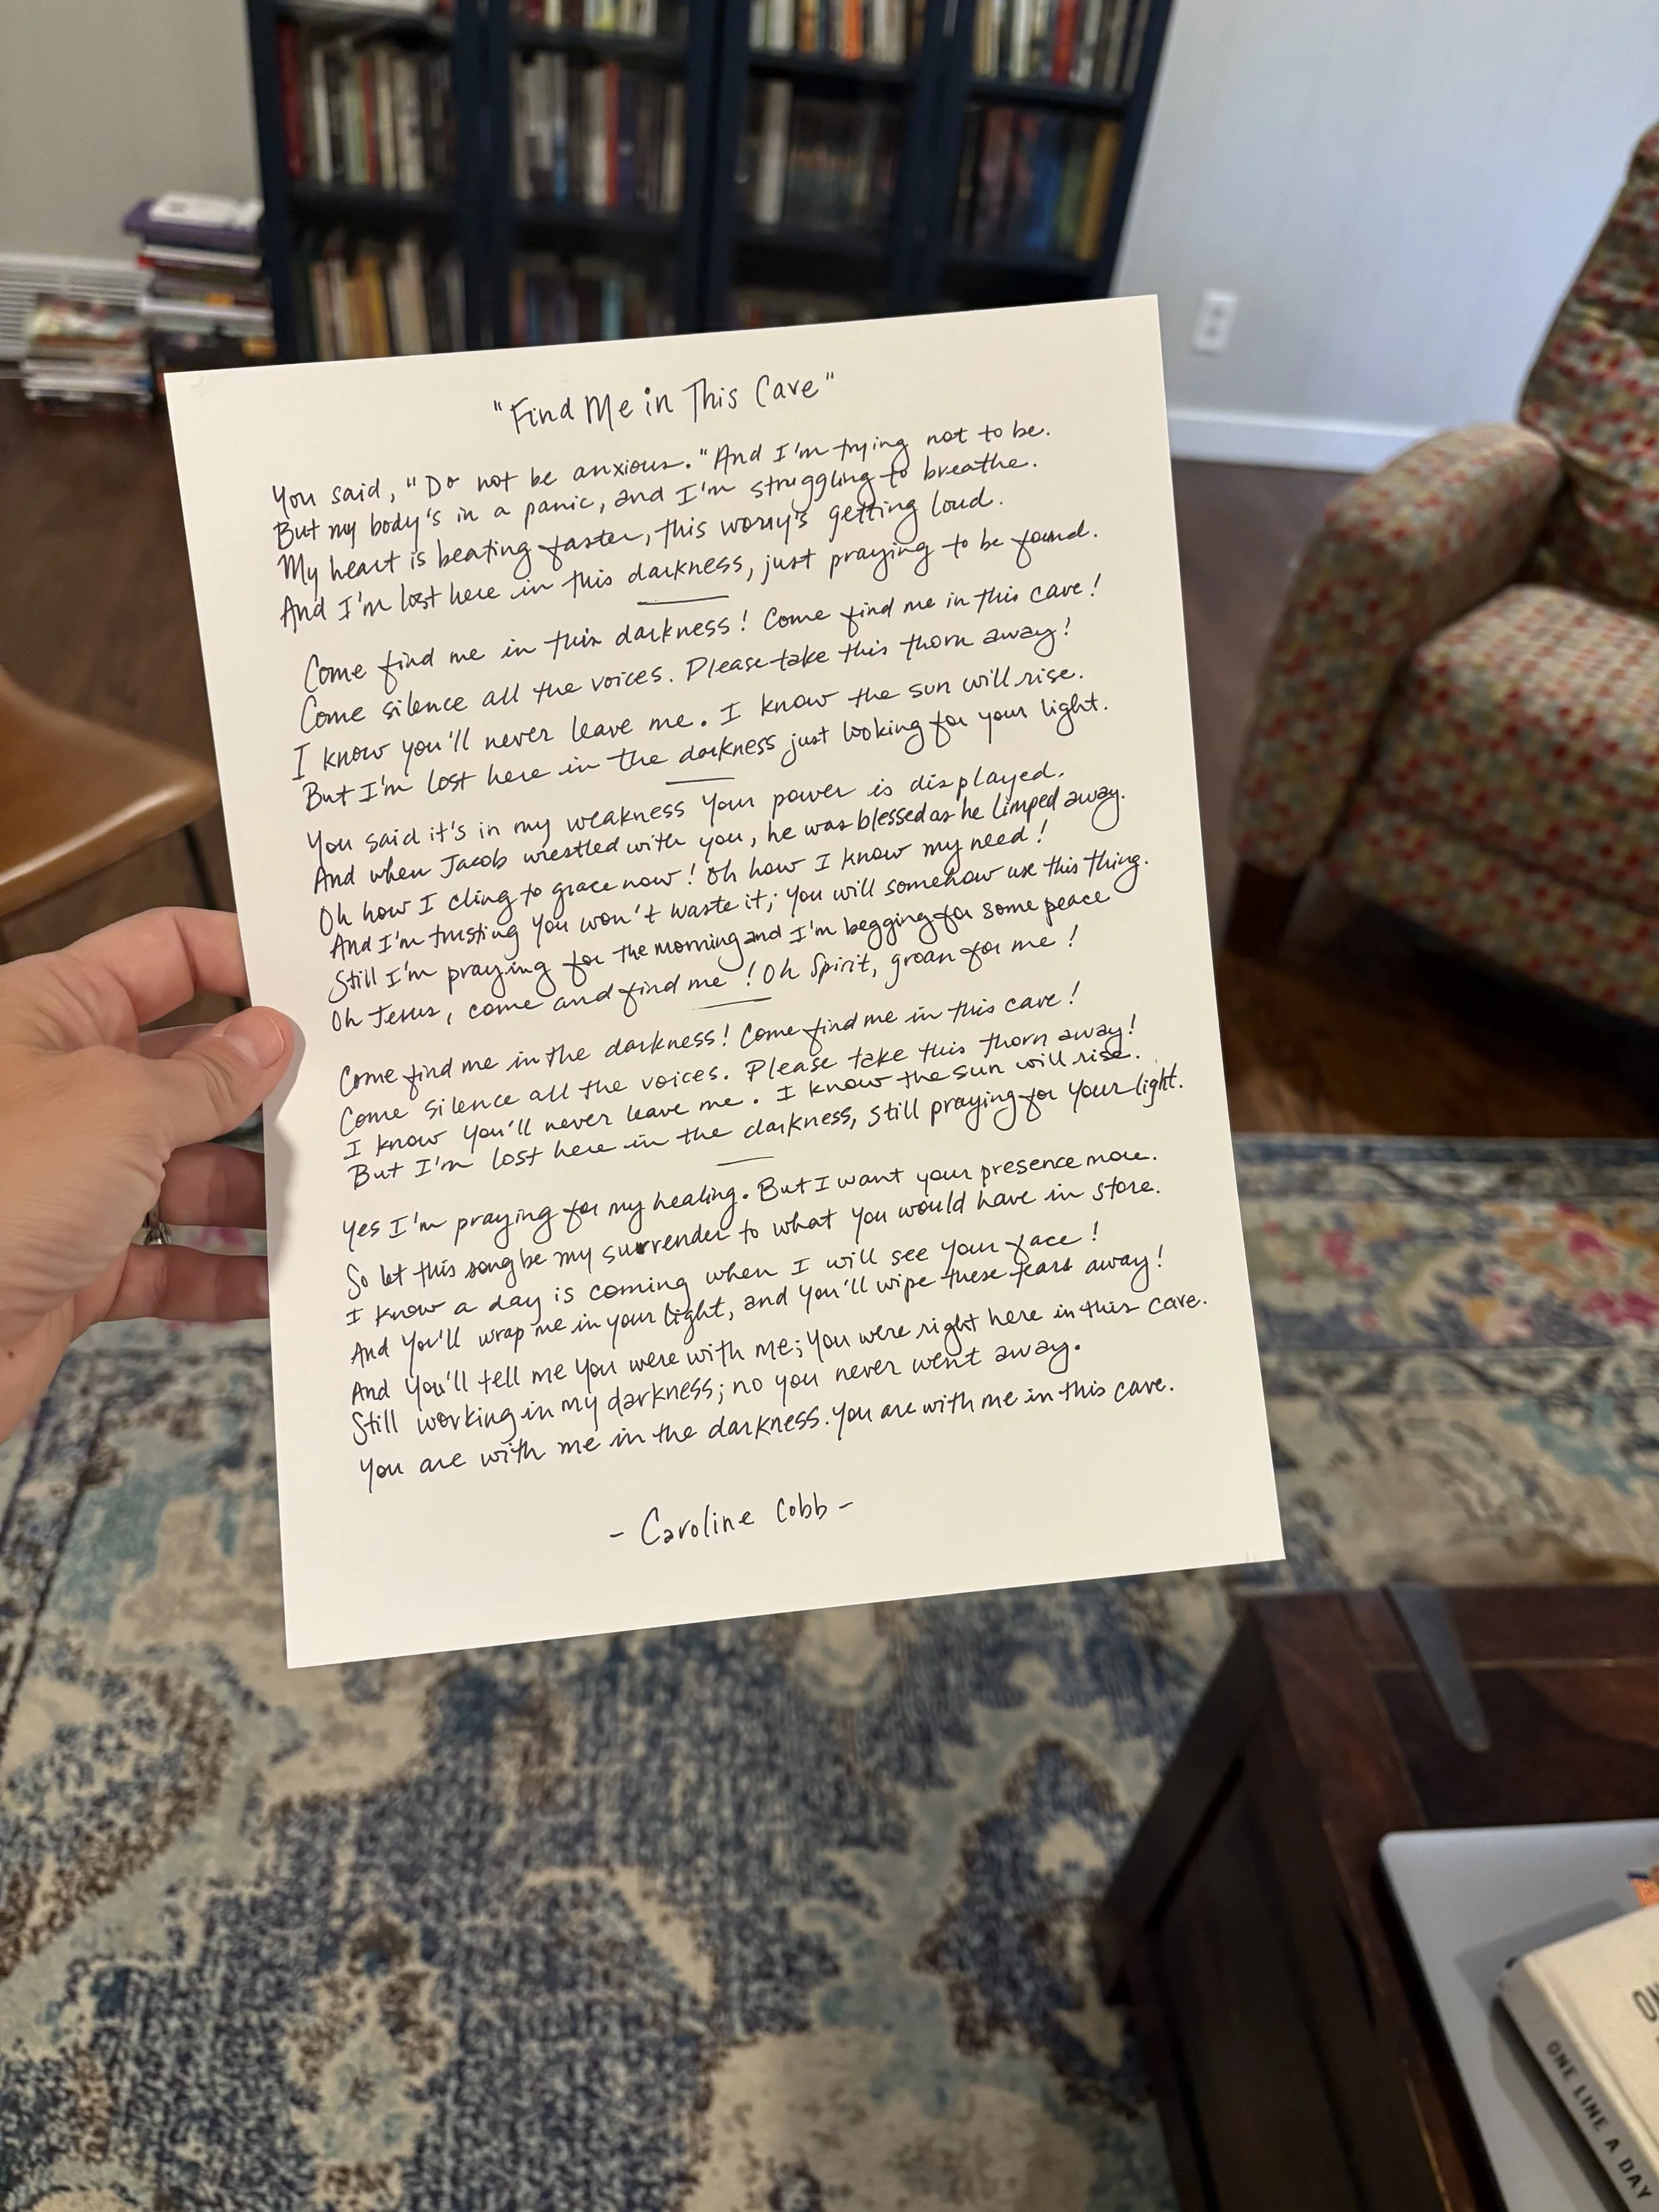 "Find Me in This Cave"
You said, "Do not be anxious." And I'm trying not to be.
But my body's in a panic, and I'm struggling to breathe.
My heart is beating faster, this worry's getting loud.
And I'm lost here in this darkness, just praying to be found.
Come find me in this darkness! Come find me in this cave!
Come silence all the voices. Please take this thorn away!
I know you'll never leave me. I know the sun will rise.
But I'm lost here in the darkness just looking for your light.
You said it's in my weakness your power is displayed.
And when Jacob wrestled with you, he was blessed as he limped away.
Oh how I cling to grace now! Oh how I know my need!
And I'm trusting you won't waste it; you will somehow use this thing.
Still I'm praying for the morning and I'm begging for some peace
Oh Jesus, come and find me! Oh Spirit, groan for me!
Come find me in the darkness! Come find me in this cave!
Come silence all the voices. Please take this thorn away!
I know you'll never leave me. I know the sun will rise.
But I'm lost here in the darkness, still praying for your light.
Yes I'm praying for my healing. But I want your presence more.
So let this song be my surrender to what you would have in store.
I know a day is coming when I will see your face!
And you'll wrap me in your light, and you'll wipe these tears away!
And you'll tell me you were with me; you were right here in this cave.
Still working in my darkness; no you never went away.
You are with me in the darkness. You are with me in this cave.
- Caroline Cobb -
ONE LINE A DAY